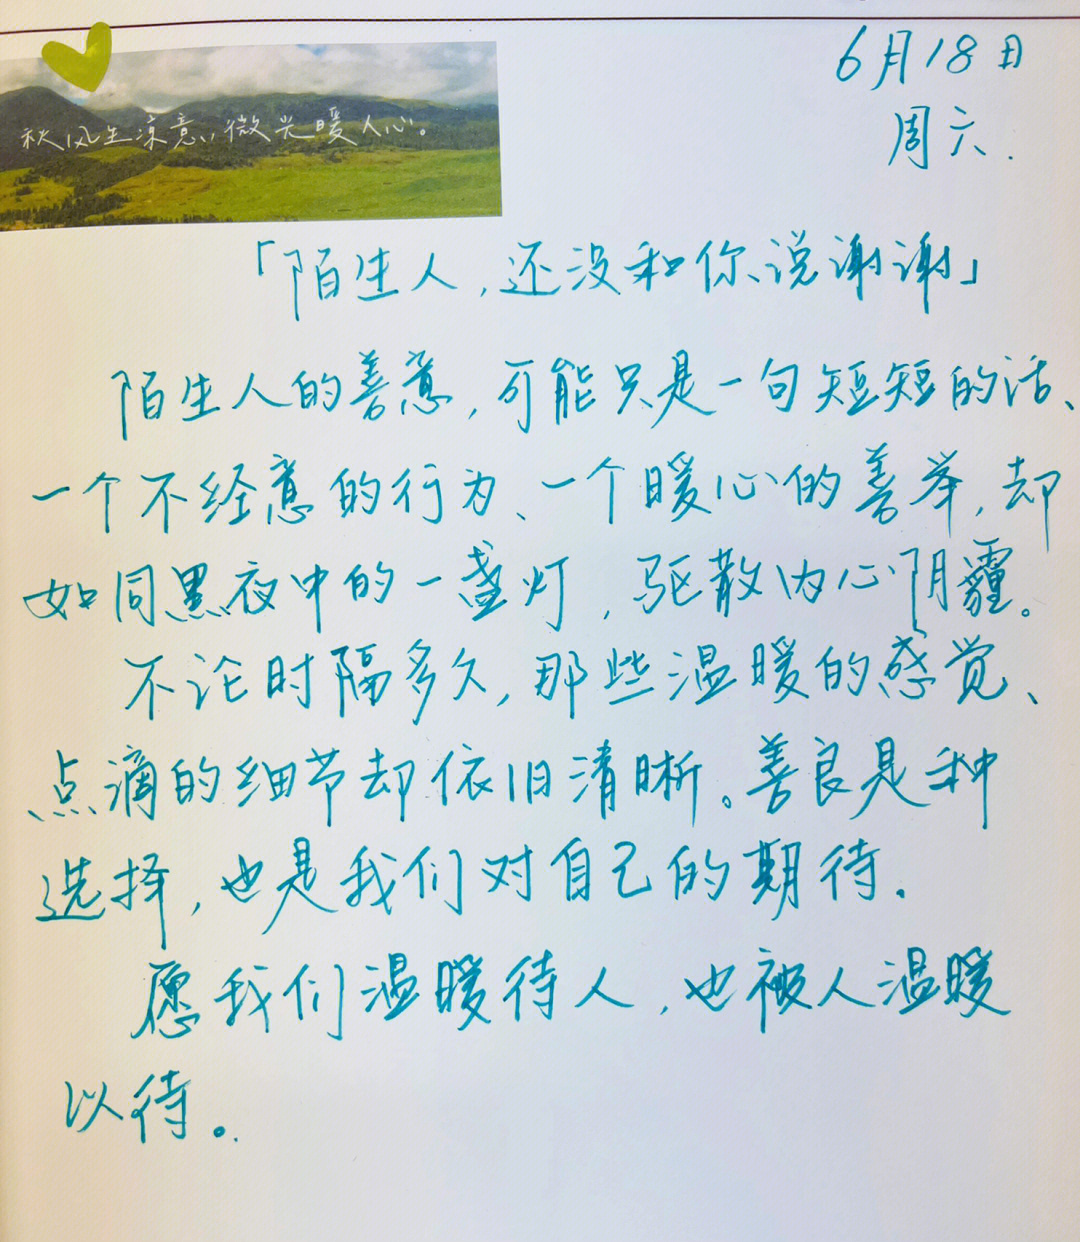 6月18日
周六.
秋风生凉意,微光暖人心。
「陌生人,还没和你说谢谢」
陌生人的善意,可能只是一句短短的话、
一个不经意的行为、一个暖心的善举,却
如同黑夜中的一盏灯,驱散内心阴霾。
不论时隔多久,那些温暖的感觉、
点滴的细节却依旧清晰。善良是种
选择,也是我们对自己的期待.
愿我们温暖待人,也被人温暖
以待。